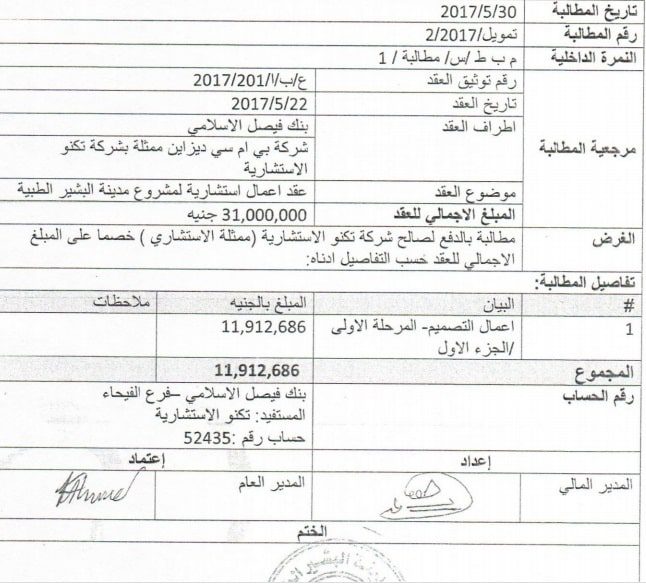 تاريخ المطالبة 2017/5/30
رقم المطالبة تمويل/2/2017
النمرة الداخلية م ب ط /س/ مطالبة / 1
مرجعية المطالبة
رقم توثيق العقد ع/ب/ا/2017/201
تاريخ العقد 2017/5/22
اطراف العقد بنك فيصل الاسلامي
شركة بي ام سي ديزاين ممثلة بشركة تكنو
الاستشارية
موضوع العقد عقد اعمال استشارية لمشروع مدينة البشير الطبية
المبلغ الاجمالي للعقد 31,000,000 جنيه
الغرض مطالبة بالدفع لصالح شركة تكنو الاستشارية (ممثلة الاستشاري ) خصما على المبلغ
الاجمالي للعقد حسب التفاصيل ادناه:
تفاصيل المطالبة:
# البيان المبلغ بالجنيه ملاحظات
1 اعمال التصميم- المرحلة الاولى 11,912,686
/الجزء الاول
المجموع 11,912,686
رقم الحساب بنك فيصل الاسلامي –فرع الفيحاء
المستفيد: تكنو الاستشارية
حساب رقم :52435
إعداد إعتماد
المدير المالي المدير العام
الختم
البشير